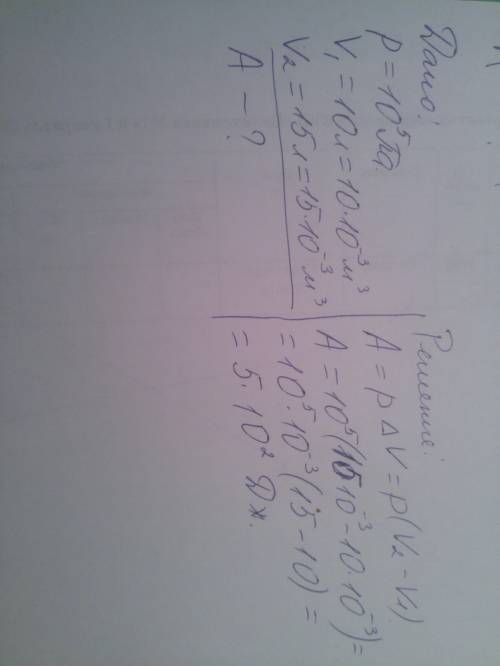 Дано:
p = 10⁵ Па
V₁ = 10 л = 10·10⁻³ м³
V₂ = 15 л = 15·10⁻³ м³
A – ?
Решение:
A = p ΔV = p(V₂ – V₁)
A = 10⁵(15 10⁻³ – 10·10⁻³) =
= 10⁵·10⁻³(15 – 10) =
= 5·10² Дж.